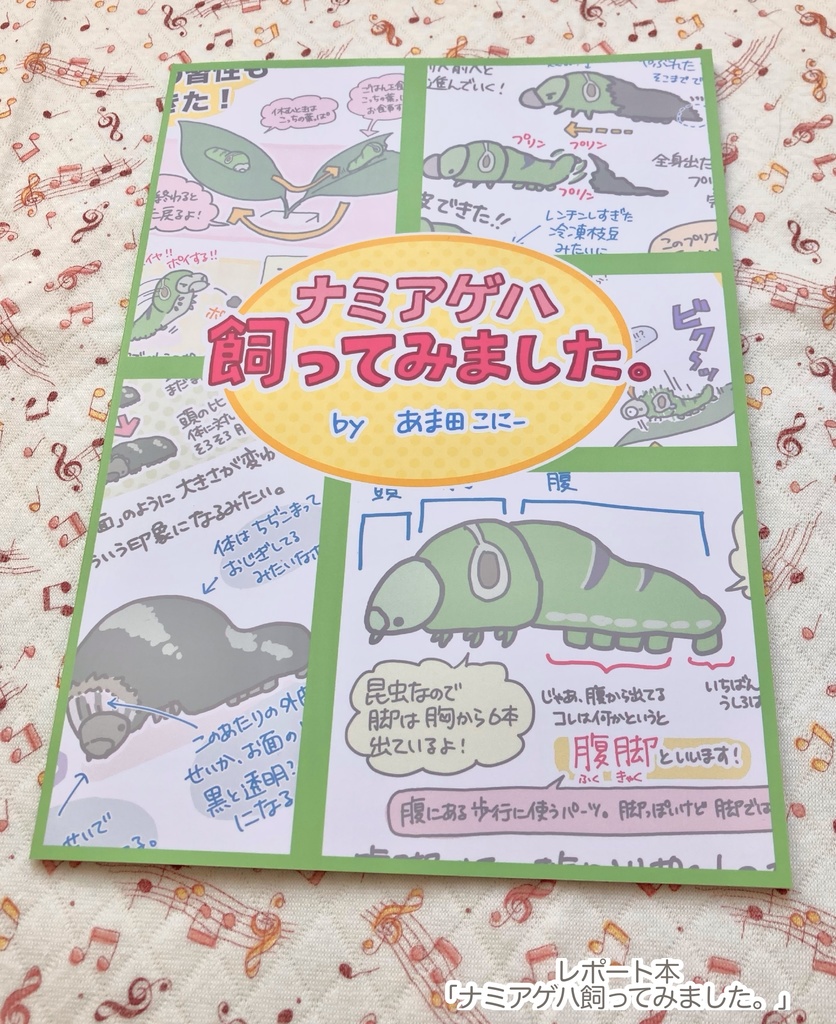 の習性も
きた！
休むときは
こっちの葉っぱ。
ごはんを食
こっちの葉っ
お食事す
終わると
戻るよ！
イヤ!! ポイする!!
ポ
前へと
進んでいく！
そこまでで
プリン
プリン
プリン
全身出た
できた!!
レンチンしすぎた
冷凍枝豆
みたいに
このプリプ
ビクーッ
ナミアゲハ
飼ってみました。
by あま田こにー
まだま
頭の比
体に対
そろそろ月
面」のように大きさが変わ
ういう印象になるみたい。
体はちぢこまって
おじぎしてる
みたいなポ
このあたりの外皮
せいか、お面の
黒と透明？
になる
せいで
る。
頭
腹
昆虫なので
脚は胸から6本
出ているよ！
じゃあ、腹から出てる
コレは何かというと
腹脚といいます！
ふく きゃく
いちばん
うしろは
腹にある歩行に使うパーツ。脚っぽいけど脚では
レポート本
「ナミアゲハ飼ってみました。」